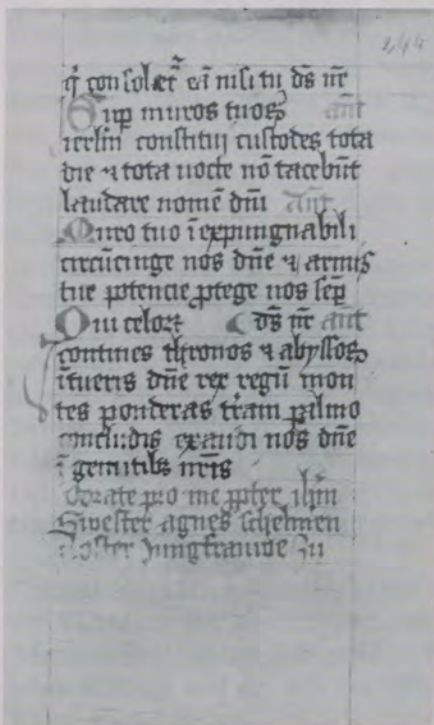 244
q̇ consolet᷑ eā nisi tu d̄s nr̄
Sup̱ muros tuos ant̄
ierl̄m constitui custodes tota
die ⁊ tota nocte nō tacebūt
laudare nomē dn̄i ant̄
Muro tuo īexpungnabili
circūcinge nos dn̄e ⁊ armis
tue potencie ꝓtege nos sēp
Qui celoꝝ d̄s nr̄ ant̄
contines thronos ⁊ abyssos
ītueris dn̄e rex regū mon
tes ponderas tr̄am palmo
concludis exaudi nos dn̄e
ī gemitibꝫ nr̄is
Orate pro me ꝓpter ih̄m
Swester agnes schelmen
closter Jungfrauwe zu